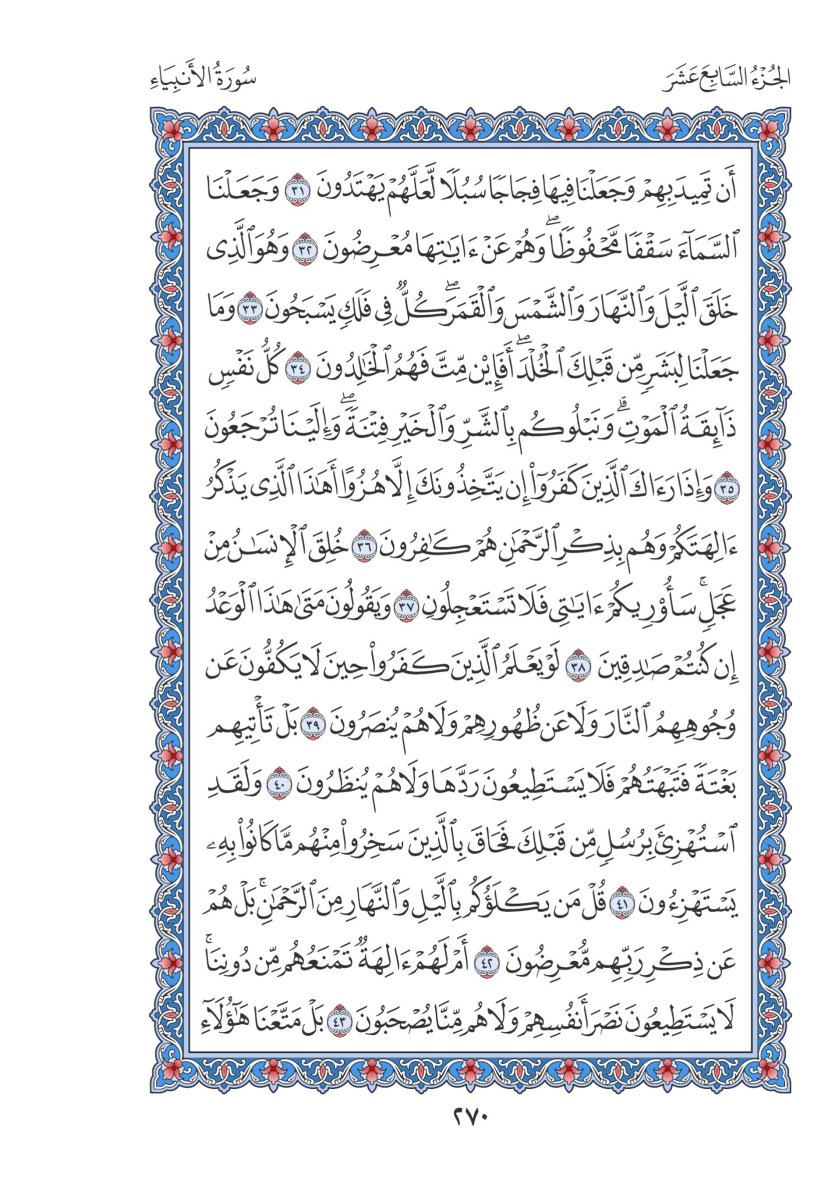 الجُزْءُ السَّابِعَ عَشَرَ
سُورَةُ الأَنبِيَاءِ
أَن تَمِيدَ بِهِمْ وَجَعَلْنَا فِيهَا فِجَاجًا سُبُلًا لَّعَلَّهُمْ يَهْتَدُونَ ٣١ وَجَعَلْنَا
ٱلسَّمَآءَ سَقْفًا مَّحْفُوظًاۖ وَهُمْ عَنْ ءَايَٰتِهَا مُعْرِضُونَ ٣٢ وَهُوَ ٱلَّذِى
خَلَقَ ٱلَّيْلَ وَٱلنَّهَارَ وَٱلشَّمْسَ وَٱلْقَمَرَۖ كُلٌّ فِى فَلَكٍ يَسْبَحُونَ ٣٣ وَمَا
جَعَلْنَا لِبَشَرٍ مِّن قَبْلِكَ ٱلْخُلْدَۖ أَفَإِي۟ن مِّتَّ فَهُمُ ٱلْخَٰلِدُونَ ٣٤ كُلُّ نَفْسٍ
ذَآئِقَةُ ٱلْمَوْتِۗ وَنَبْلُوكُم بِٱلشَّرِّ وَٱلْخَيْرِ فِتْنَةًۖ وَإِلَيْنَا تُرْجَعُونَ
٣٥ وَإِذَا رَءَاكَ ٱلَّذِينَ كَفَرُوٓا۟ إِن يَتَّخِذُونَكَ إِلَّا هُزُوًا أَهَٰذَا ٱلَّذِى يَذْكُرُ
ءَالِهَتَكُمْ وَهُم بِذِكْرِ ٱلرَّحْمَٰنِ هُمْ كَٰفِرُونَ ٣٦ خُلِقَ ٱلْإِنسَٰنُ مِنْ
عَجَلٍۚ سَأُو۟رِيكُمْ ءَايَٰتِى فَلَا تَسْتَعْجِلُونِ ٣٧ وَيَقُولُونَ مَتَىٰ هَٰذَا ٱلْوَعْدُ
إِن كُنتُمْ صَٰدِقِينَ ٣٨ لَوْ يَعْلَمُ ٱلَّذِينَ كَفَرُوا۟ حِينَ لَا يَكُفُّونَ عَن
وُجُوهِهِمُ ٱلنَّارَ وَلَا عَن ظُهُورِهِمْ وَلَا هُمْ يُنصَرُونَ ٣٩ بَلْ تَأْتِيهِم
بَغْتَةً فَتَبْهَتُهُمْ فَلَا يَسْتَطِيعُونَ رَدَّهَا وَلَا هُمْ يُنظَرُونَ ٤٠ وَلَقَدِ
ٱسْتُهْزِئَ بِرُسُلٍ مِّن قَبْلِكَ فَحَاقَ بِٱلَّذِينَ سَخِرُوا۟ مِنْهُم مَّا كَانُوا۟ بِهِۦ
يَسْتَهْزِءُونَ ٤١ قُلْ مَن يَكْلَؤُكُم بِٱلَّيْلِ وَٱلنَّهَارِ مِنَ ٱلرَّحْمَٰنِۚ بَلْ هُمْ
عَن ذِكْرِ رَبِّهِم مُّعْرِضُونَ ٤٢ أَمْ لَهُمْ ءَالِهَةٌ تَمْنَعُهُم مِّن دُونِنَاۚ
لَا يَسْتَطِيعُونَ نَصْرَ أَنفُسِهِمْ وَلَا هُم مِّنَّا يُصْحَبُونَ ٤٣ بَلْ مَتَّعْنَا هَٰٓؤُلَآءِ
٢٧٠